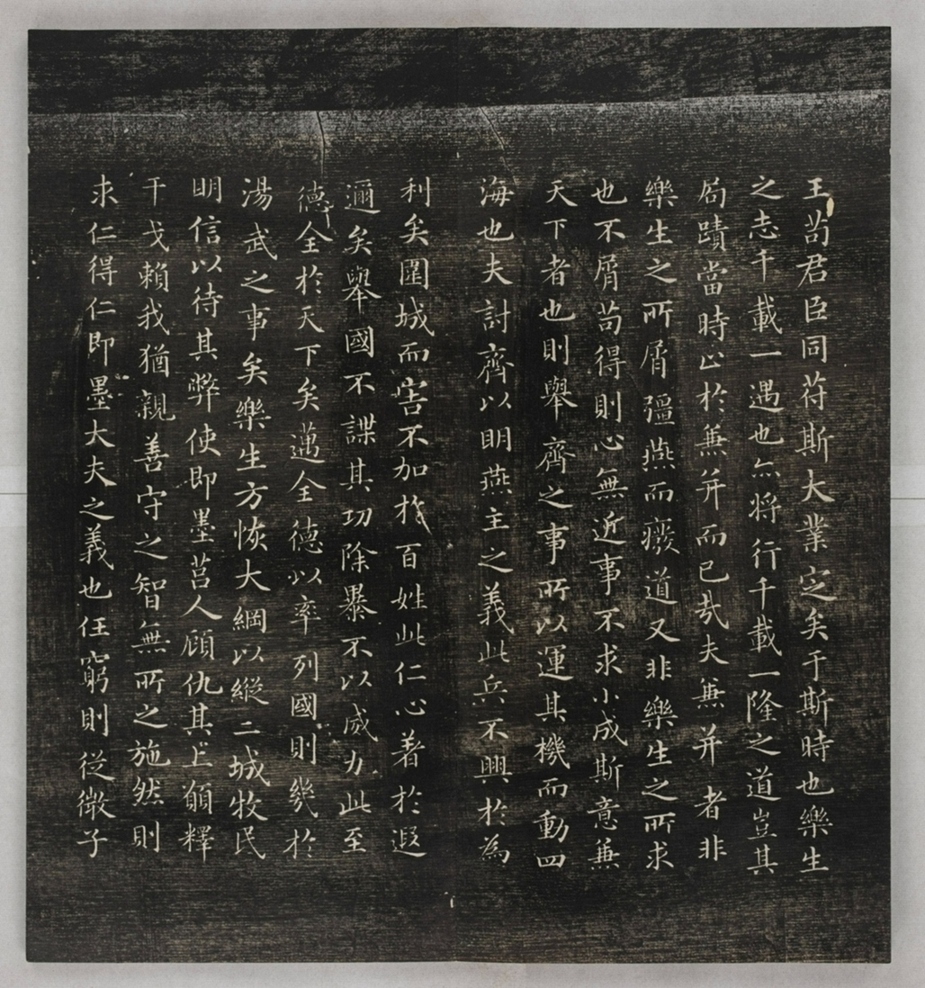 王苟君臣同苻斯大業㝎矣于斯時也樂生
之志千載一遇也亦将行千載一隆之道豈其
局蹟當時止於兼并而已㢤夫兼并者非
樂生之所屑彊燕而癈道又非樂生之所求
也不屑苟得則心無近事不求小成斯意兼
天下者也則舉齊之事所以運其機而動四
海也夫討齊以明燕主之義此兵不興於為
利矣圍城而害不加於百姓此仁心著於遐
邇矣舉國不謀其功除暴不以威力此至
德全於天下矣邁全德以率列國則幾於
湯武之事矣樂生方恢大綱以縱二城牧民
明信以待其弊使即墨莒人顧仇其上願釋
干戈賴我猶親善守之智無所之施然則
求仁得仁即墨大夫之義也任窮則從微子